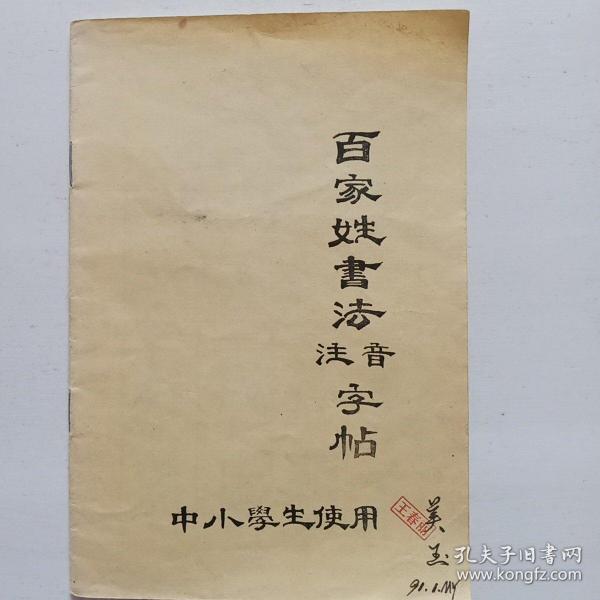 百家姓書法
注音
字帖
中小學生使用
美玉
91.1.
孔夫子旧书网
www.kongfz.com